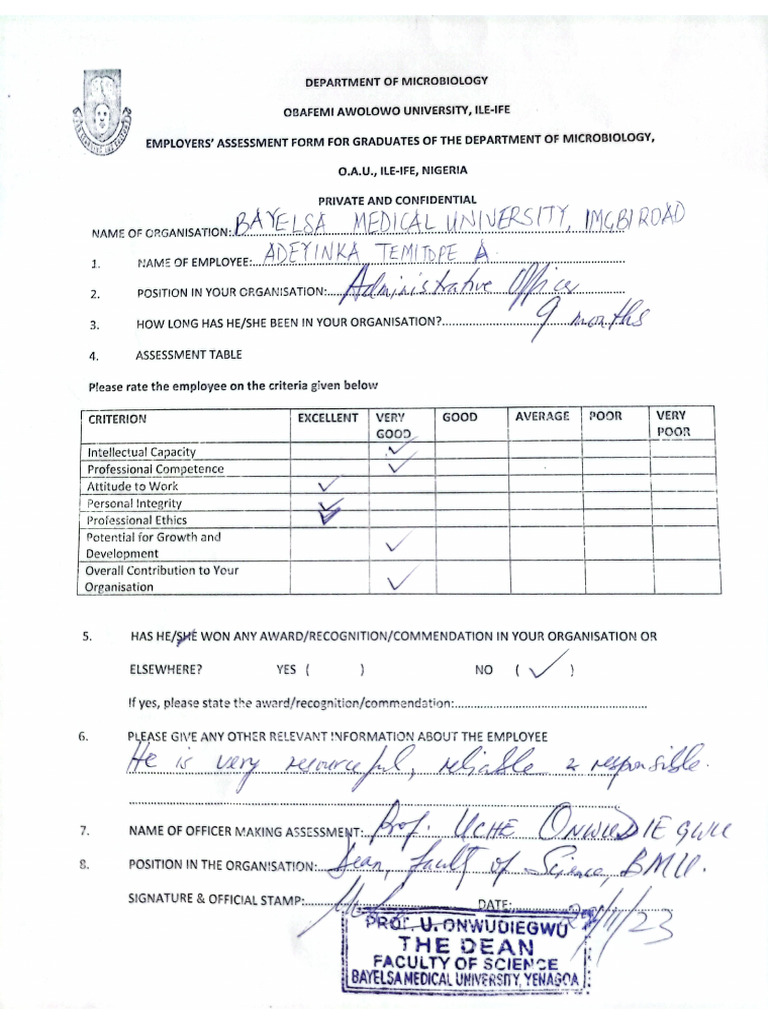 DEPARTMENT OF MICROBIOLOGY
OBAFEMI AWOLOWO UNIVERSITY, ILE-IFE
EMPLOYERS' ASSESSMENT FORM FOR GRADUATES OF THE DEPARTMENT OF MICROBIOLOGY,
O.A.U., ILE-IFE, NIGERIA
PRIVATE AND CONFIDENTIAL
NAME OF ORGANISATION: BAYELSA MEDICAL UNIVERSITY, IMGBI ROAD
1. NAME OF EMPLOYEE: ADEYINKA TEMITOPE A
2. POSITION IN YOUR ORGANISATION: Administrative Officer
3. HOW LONG HAS HE/SHE BEEN IN YOUR ORGANISATION? 9 months
4. ASSESSMENT TABLE
Please rate the employee on the criteria given below
CRITERION EXCELLENT VERY GOOD GOOD AVERAGE POOR VERY POOR
Intellectual Capacity ✓
Professional Competence ✓
Attitude to Work ✓
Personal Integrity ✓
Professional Ethics ✓
Potential for Growth and
Development ✓
Overall Contribution to Your
Organisation ✓
5. HAS HE/SHE WON ANY AWARD/RECOGNITION/COMMENDATION IN YOUR ORGANISATION OR
ELSEWHERE? YES ( ) NO ( ✓ )
If yes, please state the award/recognition/commendation:
6. PLEASE GIVE ANY OTHER RELEVANT INFORMATION ABOUT THE EMPLOYEE
He is very resourceful, reliable & responsible.
7. NAME OF OFFICER MAKING ASSESSMENT: Prof. UCHE ONWUDIEGWU
8. POSITION IN THE ORGANISATION: Dean, Faculty of Science, BMU.
SIGNATURE & OFFICIAL STAMP: DATE: /11/23
PROF U. ONWUDIEGWU
THE DEAN
FACULTY OF SCIENCE
BAYELSA MEDICAL UNIVERSITY, YENAGOA